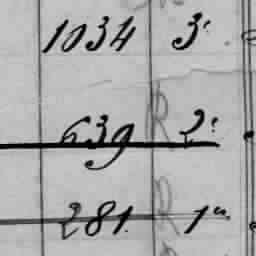 1034 3.
639 2.
281. 1a